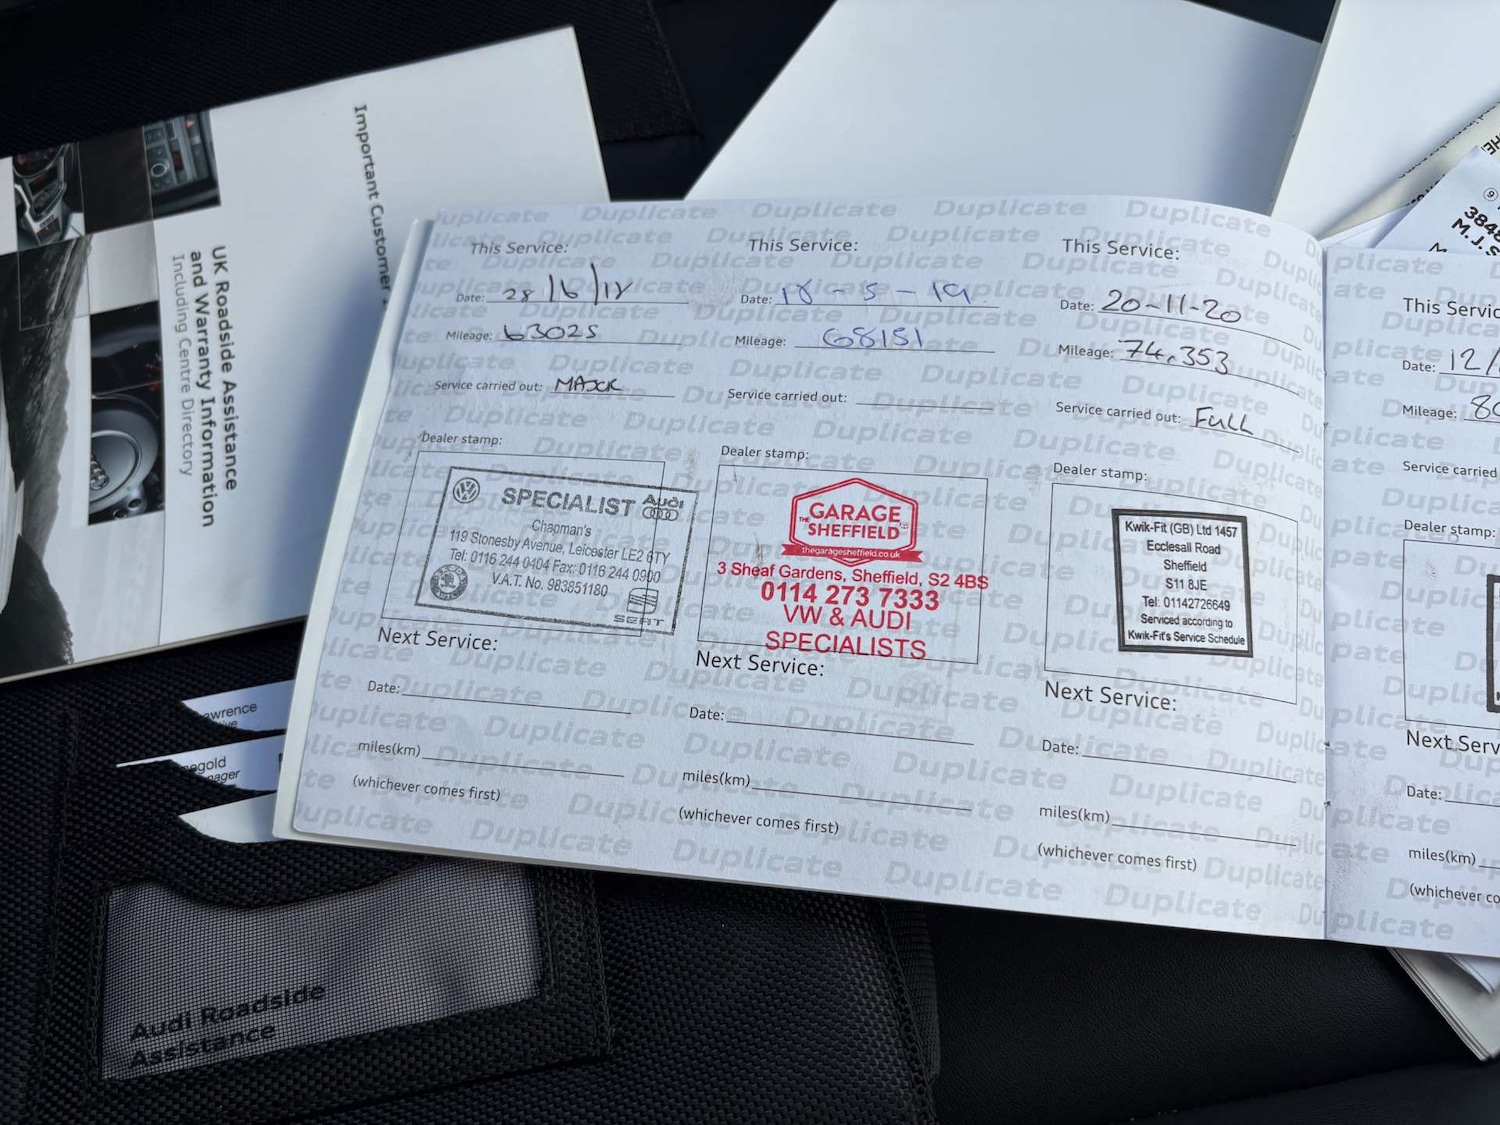 Important Customer
UK Roadside Assistance
and Warranty Information
Including Centre Directory
Duplicate
This Service:
Date: 28/6/18
Mileage: 63025
Service carried out:
Dealer stamp:
SPECIALIST Audi
Chapman's
119 Stonesby Avenue, Leicester LE2 6TY
Tel: 0116 244 0404 Fax: 0116 244 0900
V.A.T. No. 983851180
SEAT
Next Service:
Date:
miles(km)
(whichever comes first)
This Service:
Date: 18-5-19
Mileage: 68151
Service carried out:
Dealer stamp:
THE GARAGE
SHEFFIELD
thegaragesheffield.co.uk
3 Sheaf Gardens, Sheffield, S2 4BS
0114 273 7333
VW & AUDI
SPECIALISTS
Next Service:
Date:
miles(km)
(whichever comes first)
This Service:
Date: 20-11-20
Mileage: 74,353
Service carried out: Full
Dealer stamp:
Kwik-Fit (GB) Ltd 1457
Ecclesall Road
Sheffield
S11 8JE
Tel: 01142726649
Serviced according to
Kwik-Fit's Service Schedule
Next Service:
Date:
miles(km)
(whichever comes first)
This Servic
Date: 12/
Mileage: 80
Service carried
Dealer stamp:
Next Serv
Date:
miles(km)
(whichever co
3848
M.J.S
awrence
egold
nager
Audi Roadside
Assistance